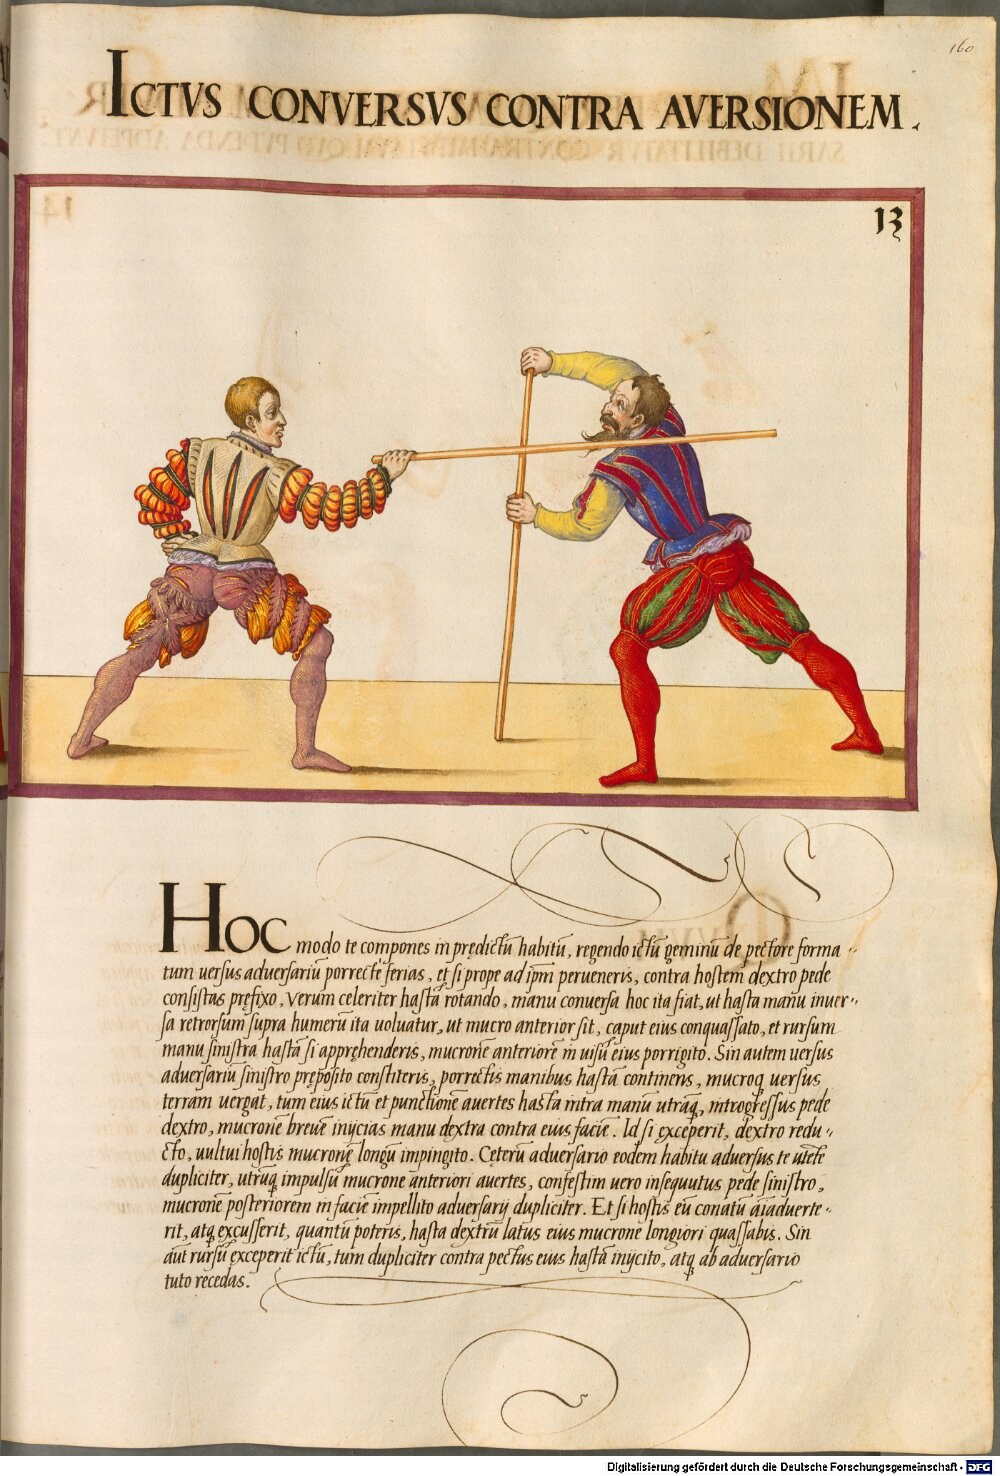 160
ICTVS CONVERSVS CONTRA AVERSIONEM.
13
Hoc modo te compones in prędictū habitū, regendo ictū geminū de pectore forma-
tum versus adversariū porrectè ferias, et si prope ad ipm perveneris, contra hostem dextro pede
consistas prefixo, Verum celeriter hastā rotando, manu conversa hoc ita fiat, ut hasta manu inver-
sa retrorsum supra humerū ita voluatur, ut mucro anterior sit, caput eius conquassato, et rursum
manu sinistra hastā si apprehenderis, mucronē anteriorē in visū eius porrigito. Sin autem versus
adversariū sinistro pręposito constiteris, porrectis manibus hastā continens, mucroq versus
terram vergat, tum eius ictū et punctionē avertes hasta intra manū utrāq, introgressus pede
dextro, mucronē brevē inijcias manu dextra contra eius faciē. Id si exceperit, dextro redu-
cto, vultui hostis mucronē longū impingito. Cęterū adversario eodem habitu adversus te utēte
dupliciter, utrūq impulsū mucrone anteriori avertes, confestim vero insequutus pede sinistro,
mucronē posteriorem in faciē impellito adversarij dupliciter. Et si hostis eū conatū aīadverte-
rit, atq excusserit, quantū poteris, hasta dextrū latus eius mucrone longiori quassabis. Sin
aut rursū exceperit ictū, tum dupliciter contra pectus eius hastā inijcito, atq ab adversario
tuto recedas.
Digitalisierung gefördert durch die Deutsche Forschungsgemeinschaft - DFG